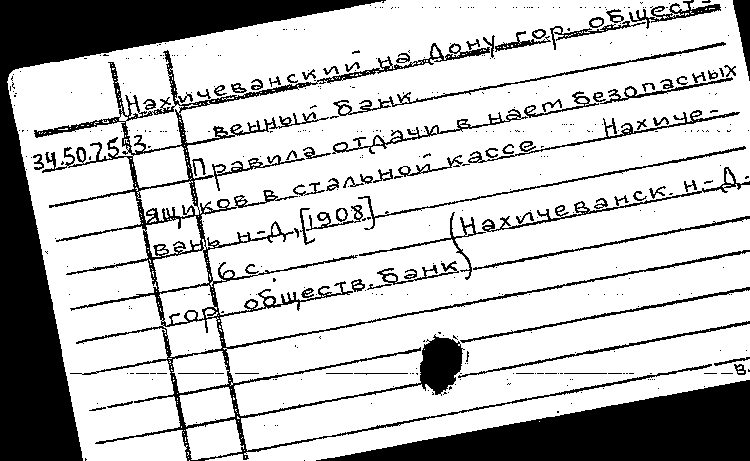 Нахичеванский на Дону гор. общест-
венный банк.
34.50.7.553.
Правила отдачи в наем безопасных
ящиков в стальной кассе. Нахиче-
вань н-Д., [1908].
6 с. (Нахичеванск. н-Д.
гор. обществ. банк)
в.